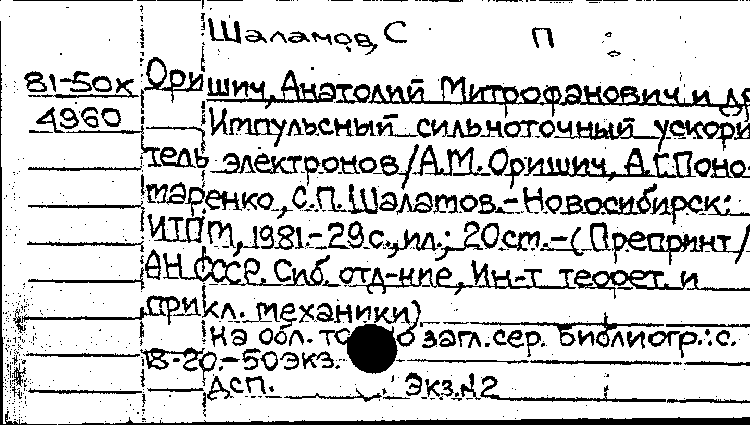 Шаламов, С П
81-50к Оришич, Анатолий Митрофанович и др
4960 Импульсный сильноточный ускори
тель электронов/А.М. Оришич, А.Г. Поно-
маренко, С.П. Шалатов.-Новосибирск:
ИТПМ, 1981.-29с., ил.; 20ст.-(Препринт/
АН СССР. Сиб. отд-ние, Ин-т теорет. и
прикл. механики)
На обл. загл. сер. Библиогр.: с.
18-20.-50экз.
ДСП. Экз.№2